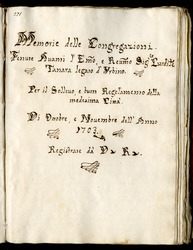 271
Memorie delle Congregazioni.
Tenute Avanti l'Emo, e Reumo Sigr Cardle
Tanara legato d'Urbino.
Per il Sollevo, e buon Regolamento della
medesima Città.
Di Ottobre, e Novembre dell'Anno
1703
Registrate da